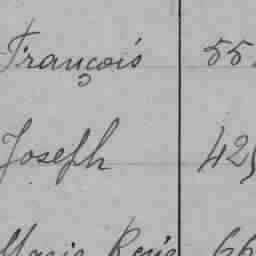 François 55
Joseph 42
Marie Rosie 66